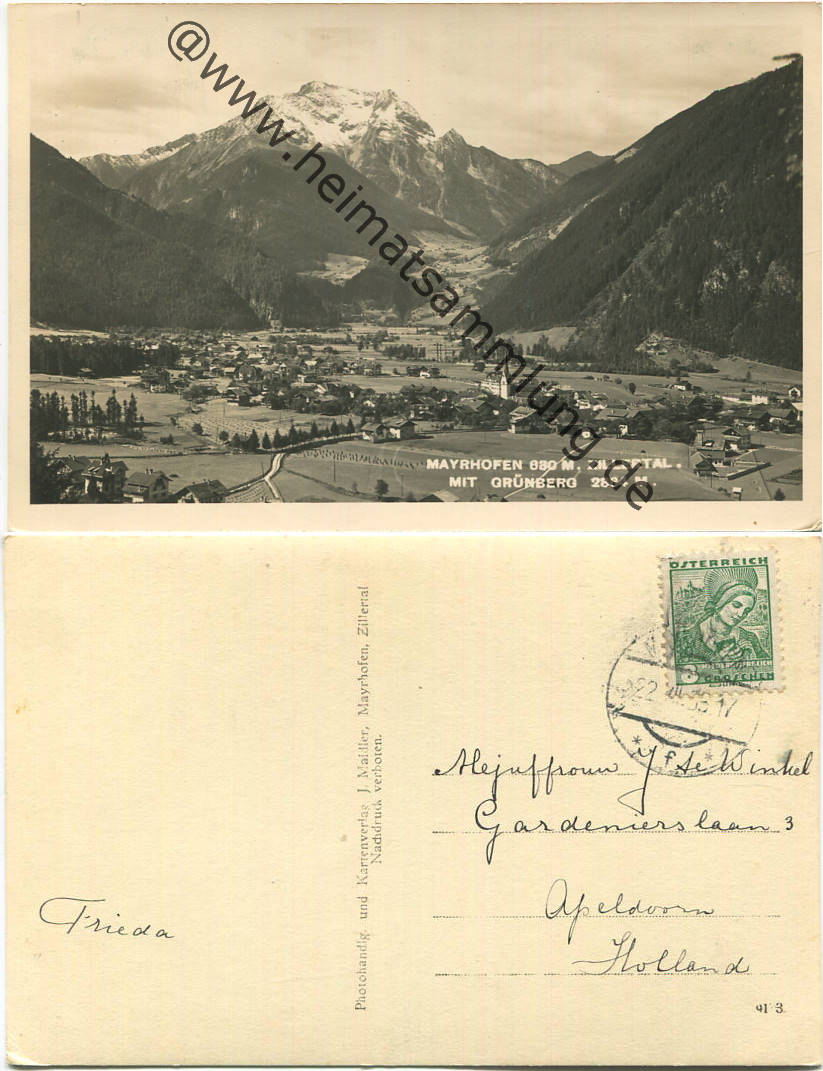 @www.heimatsammlung.de
MAYRHOFEN 680 M. ZILLERTAL.
MIT GRÜNBERG M.
Photohandlg. und Kartenverlag J. Maidler, Mayrhofen, Zillertal
Nachdruck verboten.
ÖSTERREICH
NIEDERÖSTERREICH
GROSCHEN
22. 17
* f *
Mejuffrouw J de Winkel
Gardenierslaan 3
Apeldoorn
Holland
Frieda